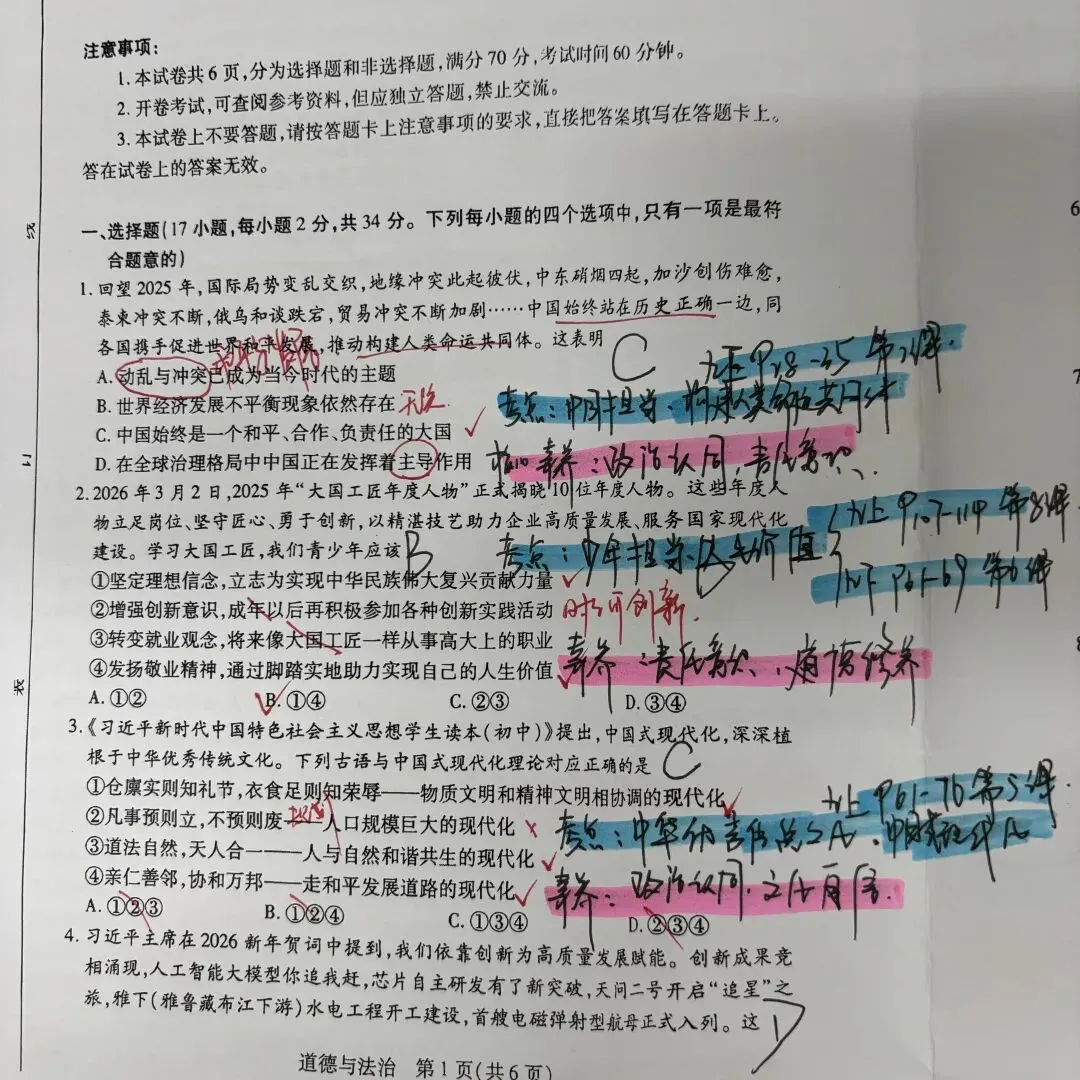 注意事项:
1. 本试卷共6页,分为选择题和非选择题,满分70分,考试时间60分钟。
2. 开卷考试,可查阅参考资料,但应独立答题,禁止交流。
3. 本试卷上不要答题,请按答题卡上注意事项的要求,直接把答案填写在答题卡上。
答在试卷上的答案无效。
一、选择题(17小题,每小题2分,共34分。下列每小题的四个选项中,只有一项是最符
合题意的)
1. 回望2025年,国际局势变乱交织,地缘冲突此起彼伏,中东硝烟四起,加沙创伤难愈,
泰柬冲突不断,俄乌和谈跌宕,贸易冲突不断加剧……中国始终站在历史正确一边,同
各国携手促进世界和平发展,推动构建人类命运共同体。这表明 C
九下P28-35 第3课
A. 动乱与冲突已成为当今时代的主题
B. 世界经济发展不平衡现象依然存在 无关
考点:中国担当、构建人类命运共同体
C. 中国始终是一个和平、合作、负责任的大国 ✓
D. 在全球治理格局中中国正在发挥着主导作用
核心素养:政治认同、责任意识、
2. 2026年3月2日,2025年“大国工匠年度人物”正式揭晓10位年度人物。这些年度人
物立足岗位、坚守匠心、勇于创新,以精湛技艺助力企业高质量发展、服务国家现代化
九上P107-114 第8课
建设。学习大国工匠,我们青少年应该 B
考点:少年担当、人生价值
①坚定理想信念,立志为实现中华民族伟大复兴贡献力量 ✓
七下P61-69 第6课
②增强创新意识,成年以后再积极参加各种创新实践活动
时时可创新.
③转变就业观念,将来像大国工匠一样从事高大上的职业
④发扬敬业精神,通过脚踏实地助力实现自己的人生价值 ✓
素养:责任意识、道德修养
A. ①② B. ①④ C. ②③ D. ③④
3. 《习近平新时代中国特色社会主义思想学生读本(初中)》提出,中国式现代化,深深植
根于中华优秀传统文化。下列古语与中国式现代化理论对应正确的是 C
①仓廪实则知礼节,衣食足则知荣辱——物质文明和精神文明相协调的现代化 ✓
九上P61-76 第5课
②凡事预则立,不预则废——人口规模巨大的现代化 ×
考点:中华优秀传统文化、中国式现代化
③道法自然,天人合一——人与自然和谐共生的现代化 ✓
④亲仁善邻,协和万邦——走和平发展道路的现代化 ✓
素养:政治认同、文化自信.
A. ①②③ B. ①②④ C. ①③④ D. ②③④
4. 习近平主席在2026新年贺词中提到,我们依靠创新为高质量发展赋能。创新成果竞
相涌现,人工智能大模型你追我赶,芯片自主研发有了新突破,天问二号开启“追星”之
旅,雅下(雅鲁藏布江下游)水电工程开工建设,首艘电磁弹射型航母正式入列。这 D
道德与法治 第1页(共6页)
线
订
装
6
7
8